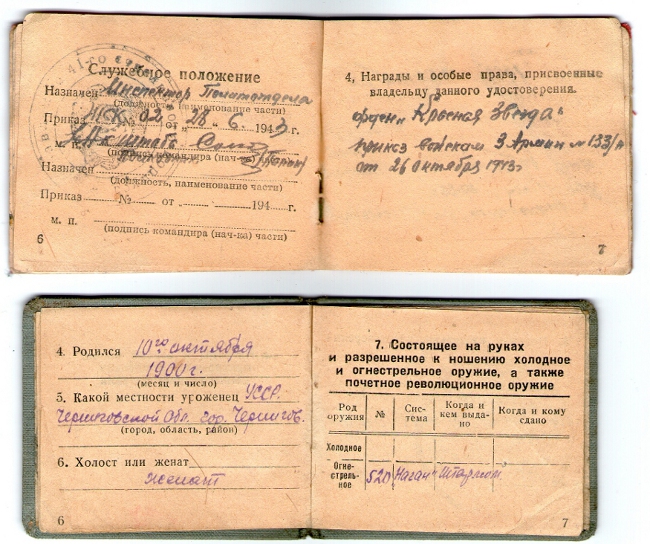 Служебное положение
Назначен Инспектор Политотдела
(должность, наименование части)
Приказ № 02 28 - 6 1943 г.
м. п.
(подпись командира (нач-ка) части)
Назначен
(должность, наименование части)
Приказ № от 194 г.
м. п.
(подпись командира (нач-ка) части)
6
4, Награды и особые права, присвоенные
владельцу данного удостоверения.
орден „Красная Звезда"
приказ войскам 3 Армии № 133/н
от 26 октября 1943г
7
4. Родился 10го октября
1900 г.
(месяц и число)
5. Какой местности уроженец УССР.
Черниговской Обл. гор. Чернигов.
(город, область, район)
6. Холост или женат
женат
6
7. Состоящее на руках
и разрешенное к ношению холодное
и огнестрельное оружие, а также
почетное революционное оружие
Род оружия № Сис-тема Когда и кем выда-но Когда и кому сдано
Холодное
Огне-стрель-ное 520 Наган
7